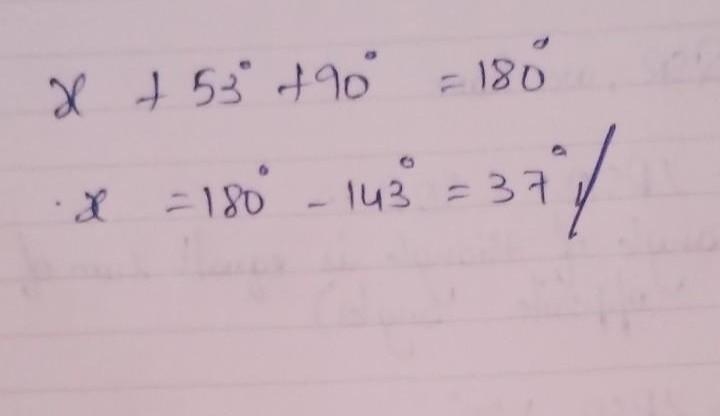 x + 53° + 90° = 180°
x = 180° - 143° = 37°